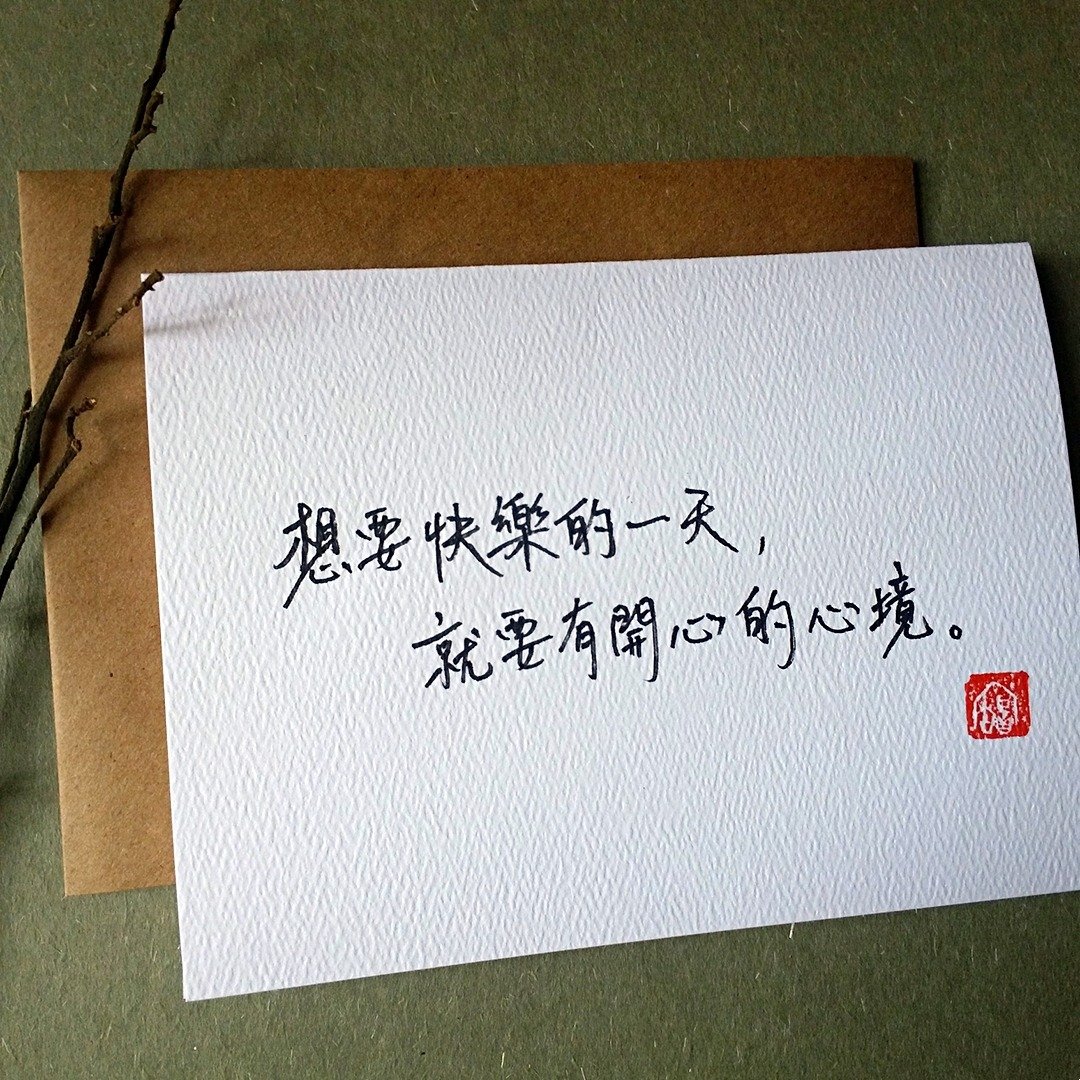 想要快樂的一天,
就要有開心的心境。